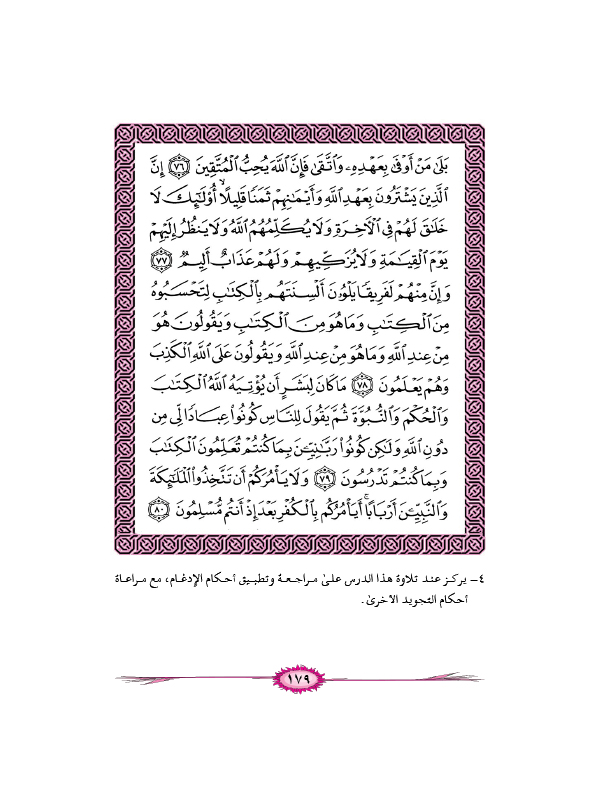 بَلَىٰ مَنْ أَوْفَىٰ بِعَهْدِهِۦ وَٱتَّقَىٰ فَإِنَّ ٱللَّهَ يُحِبُّ ٱلْمُتَّقِينَ ﴿٧٦﴾ إِنَّ
ٱلَّذِينَ يَشْتَرُونَ بِعَهْدِ ٱللَّهِ وَأَيْمَٰنِهِمْ ثَمَنًا قَلِيلًا أُو۟لَٰٓئِكَ لَا
خَلَٰقَ لَهُمْ فِى ٱلْـَٔاخِرَةِ وَلَا يُكَلِّمُهُمُ ٱللَّهُ وَلَا يَنظُرُ إِلَيْهِمْ
يَوْمَ ٱلْقِيَٰمَةِ وَلَا يُزَكِّيهِمْ وَلَهُمْ عَذَابٌ أَلِيمٌ ﴿٧٧﴾
وَإِنَّ مِنْهُمْ لَفَرِيقًا يَلْوُۥنَ أَلْسِنَتَهُم بِٱلْكِتَٰبِ لِتَحْسَبُوهُ
مِنَ ٱلْكِتَٰبِ وَمَا هُوَ مِنَ ٱلْكِتَٰبِ وَيَقُولُونَ هُوَ
مِنْ عِندِ ٱللَّهِ وَمَا هُوَ مِنْ عِندِ ٱللَّهِ وَيَقُولُونَ عَلَى ٱللَّهِ ٱلْكَذِبَ
وَهُمْ يَعْلَمُونَ ﴿٧٨﴾ مَا كَانَ لِبَشَرٍ أَن يُؤْتِيَهُ ٱللَّهُ ٱلْكِتَٰبَ
وَٱلْحُكْمَ وَٱلنُّبُوَّةَ ثُمَّ يَقُولَ لِلنَّاسِ كُونُوا۟ عِبَادًا لِّى مِن
دُونِ ٱللَّهِ وَلَٰكِن كُونُوا۟ رَبَّٰنِيِّـۧنَ بِمَا كُنتُمْ تُعَلِّمُونَ ٱلْكِتَٰبَ
وَبِمَا كُنتُمْ تَدْرُسُونَ ﴿٧٩﴾ وَلَا يَأْمُرَكُمْ أَن تَتَّخِذُوا۟ ٱلْمَلَٰٓئِكَةَ
وَٱلنَّبِيِّـۧنَ أَرْبَابًا ۗ أَيَأْمُرُكُم بِٱلْكُفْرِ بَعْدَ إِذْ أَنتُم مُّسْلِمُونَ ﴿٨٠﴾
٤- يركز عند تلاوة هذا الدرس على مراجعة وتطبيق أحكام الإدغام، مع مراعاة
أحكام التجويد الأخرى.
١٧٩